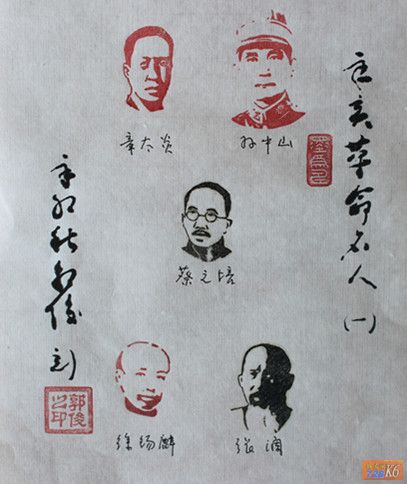 辛亥革命名人(一)
孙中山
章太炎
蔡元培
张澜
徐锡麟
辛卯秋郭俊刻
郭俊
之印
K6